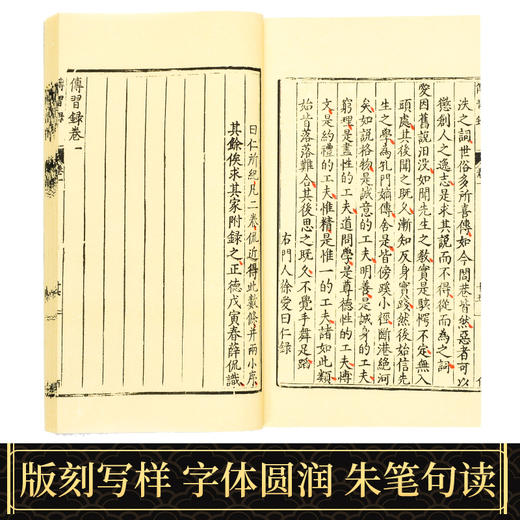 泆之詞世俗多所喜傳如今閭巷皆然惡者可以
懲創人之逸志是求其說而不得從而為之詞
愛因舊說汨沒始聞先生之教實是駭愕不定無入
頭處其後聞之既久漸知反身實踐然後始信先
生之學為孔門嫡傳舍是皆傍蹊小徑斷港絕河
矣如說格物是誠意的工夫明善是誠身的工夫
窮理是盡性的工夫道問學是尊德性的工夫博
文是約禮的工夫惟精是惟一的工夫諸如此類
始皆落落難合其後思之既久不覺手舞足蹈
右門人徐愛曰仁錄
曰仁所紀凡二卷侃近得此數條并兩小序
其餘俟求其家附錄之正德戊寅春薛侃識
傳習錄卷一
版刻写样 字体圆润 朱笔句读